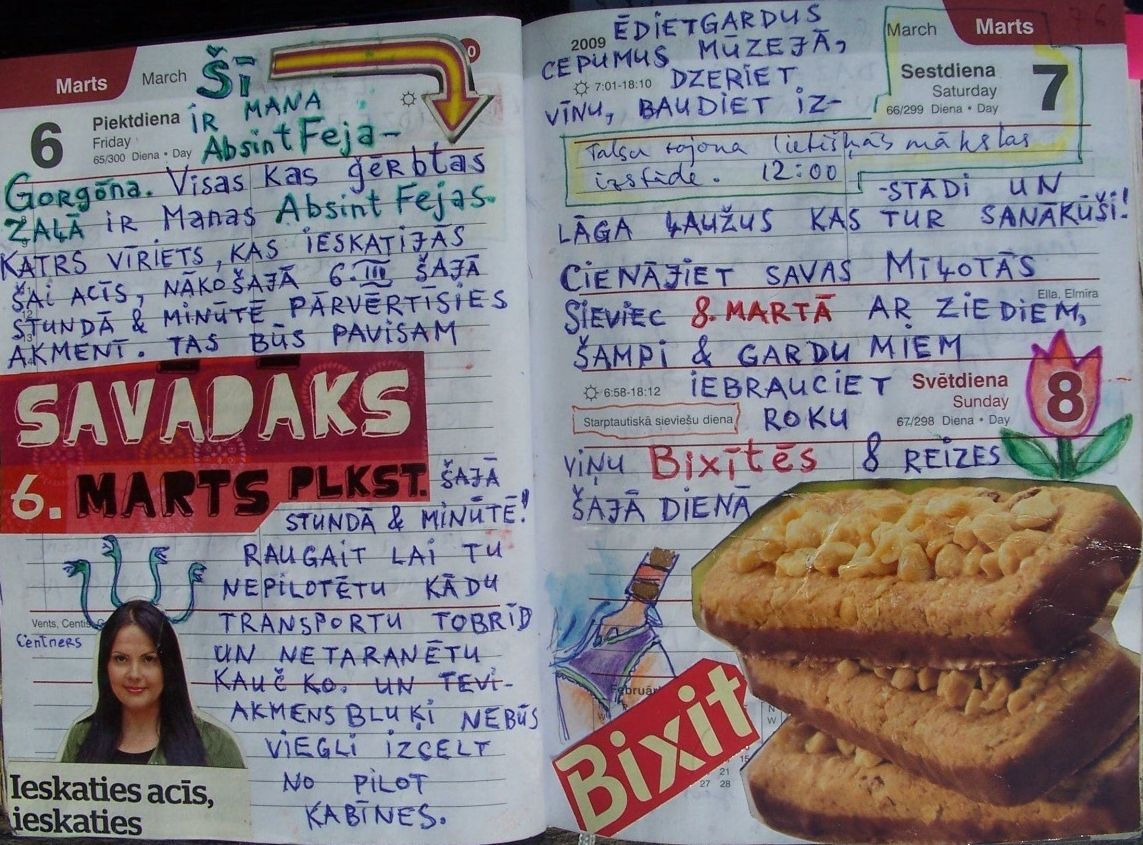 Marts
March
6
Piektdiena
Friday
65/300 Diena • Day
ŠĪ
IR MANA
Absint Feja-
Gorgōna. Visas kas ģērbtas
ZAĻĀ IR Manas Absint Fejas.
KATRS VĪRIETS, KAS IESKATĪJĀS
ŠAI ACĪS, NĀKOŠAJĀ 6.III ŠAJĀ
STUNDĀ & MINŪTĒ PĀRVĒRTĪSIES
AKMENĪ. TAS BŪS PAVISAM
SAVĀDĀKS
6. MARTS PLKST. ŠAJĀ
STUNDĀ & MINŪTĒ!
RAUGAIT LAI TU
NEPILOTĒTU KĀDU
TRANSPORTU TOBRĪD
UN NETARANĒTU
KAUČ KO. UN TEVI-
AKMENS BLUĶI NEBŪS
VIEGLI IZCELT
NO PILOT
KABĪNES.
Centners
Ieskaties acīs,
ieskaties
2009
7:01-18:10
ĒDIET GARDUS
CEPUMUS MŪZEJĀ,
DZERIET
VĪNU, BAUDIET IZ-
March
Marts
Sestdiena
Saturday
7
66/299 Diena • Day
Talsu rajona lietišķās mākslas
izstāde. 12:00
-STĀDI UN
LĀGA ĻAUŽUS KAS TUR SANĀKUŠI!
CIENĀJIET SAVAS MĪĻOTĀS
Ella, Elmīra
SIEVIEC 8. MARTĀ AR ZIEDIEM,
ŠAMPI & GARDUMIEM
6:58-18:12
IEBRAUCIET
Svētdiena
Sunday
8
67/298 Diena • Day
Starptautiskā sieviešu diena
ROKU
VIŅU Bixītēs 8 REIZES
ŠAJĀ DIENĀ
Bixit
21
27 28